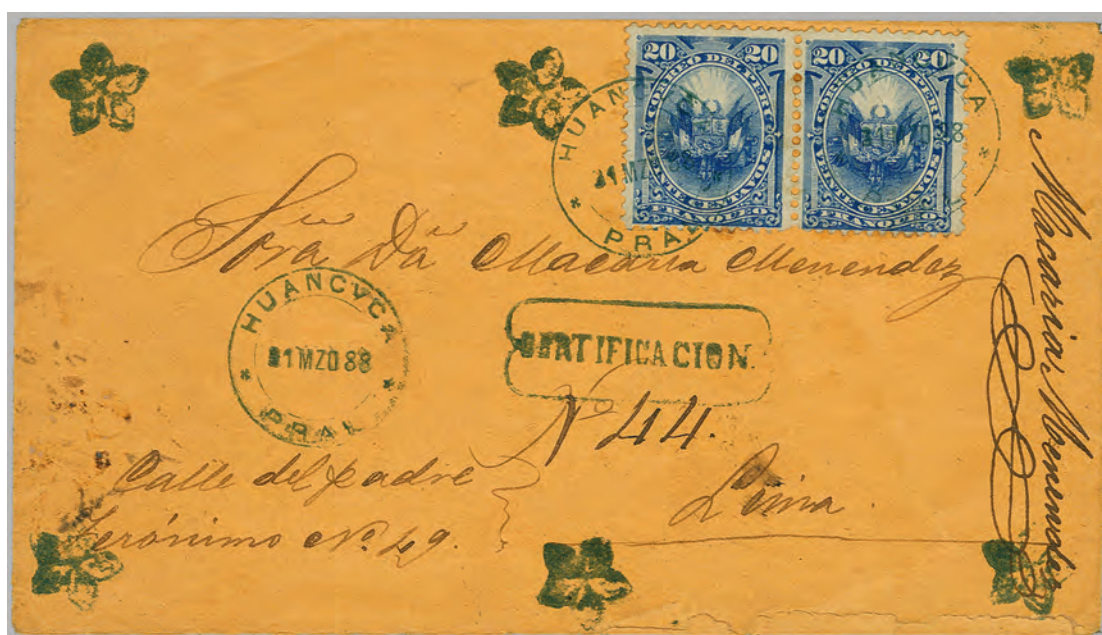 20 20
CORREO DEL PERU
VEINTE CENTAVOS
FRANQUEO
20 20
CORREO DEL PERU
VEINTE CENTAVOS
FRANQUEO
HUANCVCA
31 MZO 88
PRAL
Sora Dña Macaria Menendez
HUANCVCA
31 MZO 88
PRAL
CERTIFICACION.
Nº 44.
Calle del padre
Jerónimo Nº 49.
Lima.
Macaria Menendez